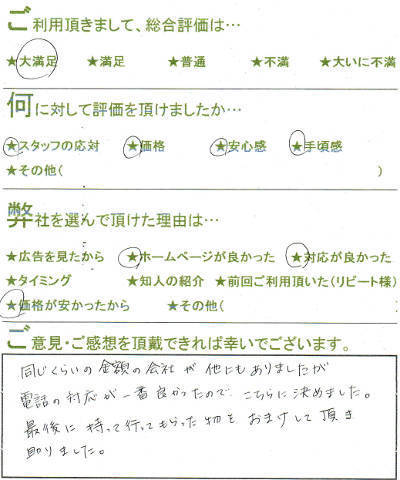 ご利用頂きまして、総合評価は…
★大満足 ★満足 ★普通 ★不満 ★大いに不満
何に対して評価を頂けましたか…
★スタッフの応対 ★価格 ★安心感 ★手頃感
★その他( )
弊社を選んで頂けた理由は…
★広告を見たから ★ホームページが良かった ★対応が良かった
★タイミング ★知人の紹介 ★前回ご利用頂いた(リピート様)
★価格が安かったから ★その他(
ご意見・ご感想を頂戴できれば幸いでございます。
同じくらいの金額の会社が他にもありましたが
電話の対応が一番良かったので、こちらに決めました。
最後に持って行ってもらった物をおまけして頂き
助りました。